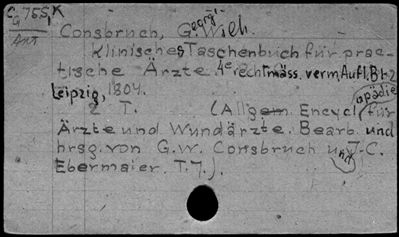 C G 755, K
Arzt
Consbruch, Georg Wilh.
Klinisches Taschenbuch für prac-
tische Ärzte. 4e rechtmäss. verm. Aufl. Bd. 1-2
Leipzig, 1804.
2 T. (Allgem. Encyclopädie für
Ärzte und Wundärzte. Bearb. und
hrsg. von G. W. Consbruch und J. C.
Ebermaier. T. 7.).